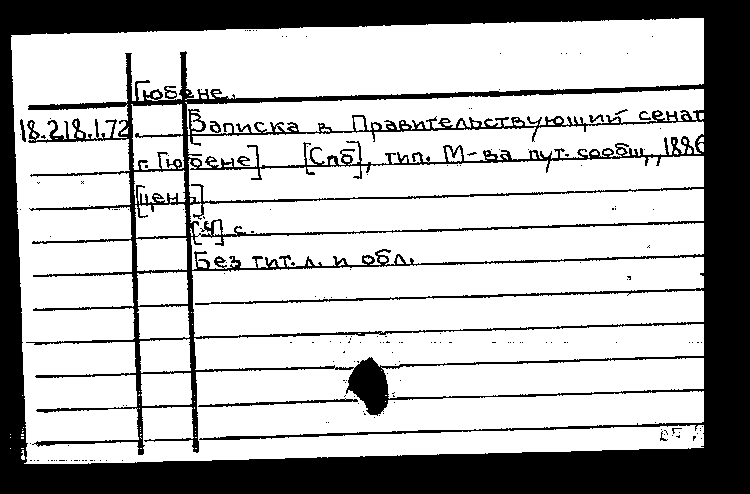 Гюбене.
18.218.1.72. [Записка в Правительствующий сенат
г. Гюбене]. [Спб], тип. М-ва пут. сообщ., 1886
[ценз]
[4] с.
Без тит. л. и обл.